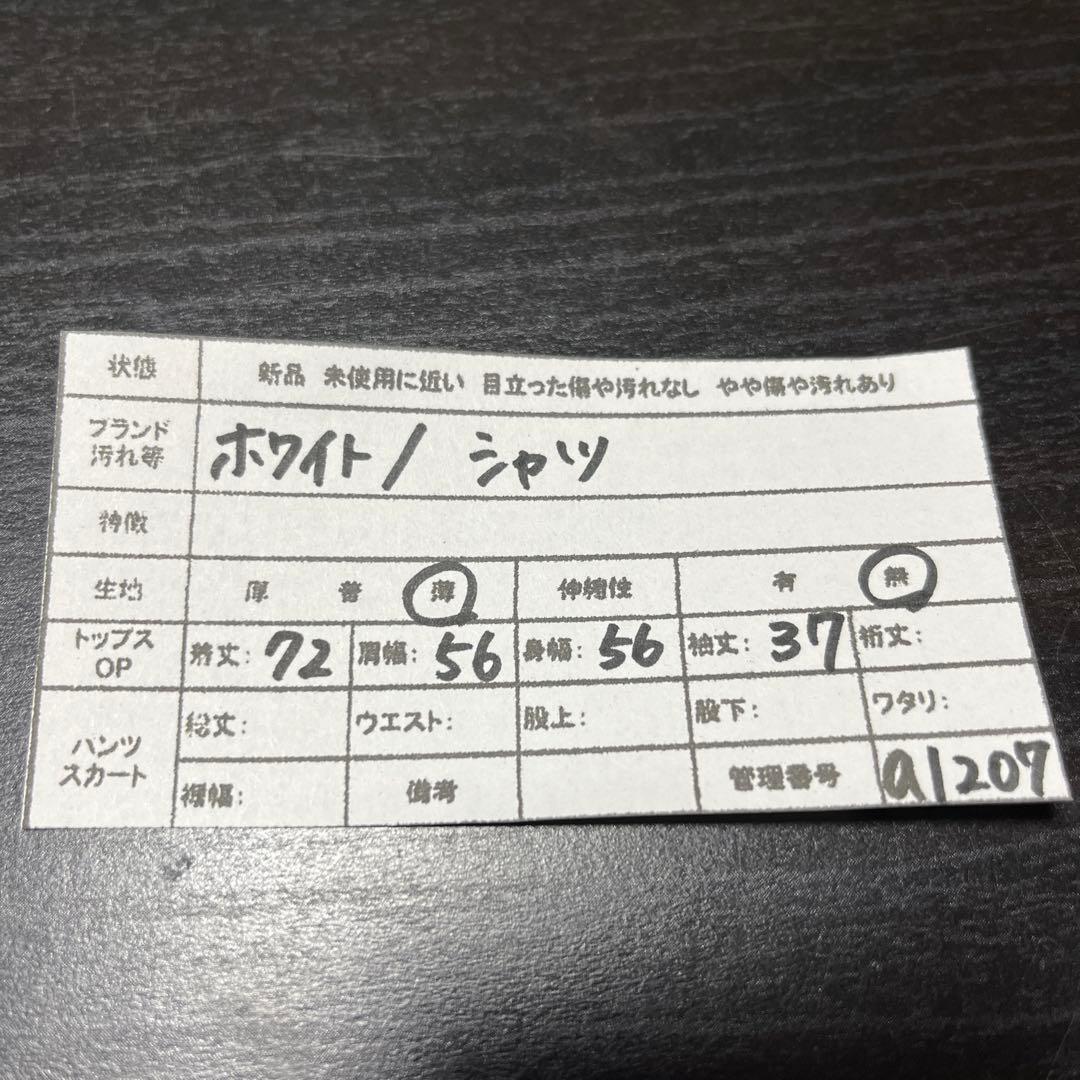 状態 新品 未使用に近い 目立った傷や汚れなし やや傷や汚れあり
ブランド
汚れ等 ホワイト/ シャツ
特徴
生地 厚 普 薄 伸縮性 有 無
トップス
OP 着丈:72 肩幅:56 身幅:56 袖丈:37 裄丈:
パンツ
スカート 総丈: ウエスト: 股上: 股下: ワタリ:
裾幅: 備考 管理番号 a1207